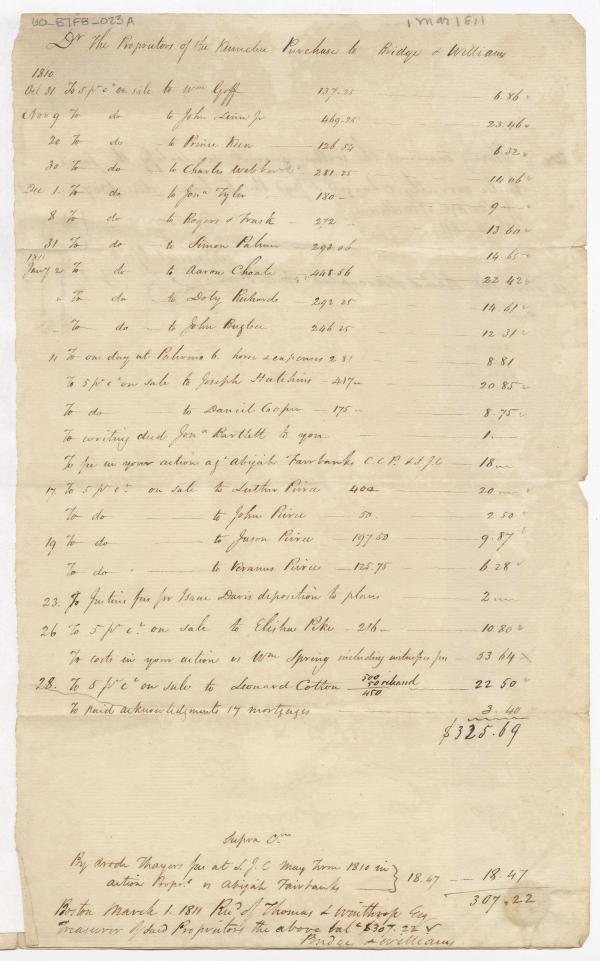 UO-B7F8-023A
1 Mar 1811
Dr The Proprietors of the Kennebec Purchase to Bridge & Williams
1810
Oct 31 To 5 pr ct on sale to Wm Goff 137.25 6.86
Nov 9 To do to John Linn jr 469.25 23.46
20 To do to Prince Keen 126.54 6.32
30 To do to Charles Webber 281.25 14.06
Dec 1. To do to Jona Tyler 180 - 9 -
8 To do to Rogers & Trask 272 13.60
31 To do to Simon Palmer 293.06 14.65
1811
Jany 2 To do to Aaron Choate 448.56 22.42
" To do to Doty Richards 292.25 14.61
" To do to John Bugbee 246.25 12.31
11 To one day at Palermo 6. horse & expenses 2.81 8.81
To 5 pr ct on sale to Joseph Hutchins - 417 - 20.85
To do to Daniel Cooper - 175 - 8.75
To writing deed Jona Bartlett to you 1. -
To fee in your action agt Abijah Fairbanks C.C.P. & S.J.C 18 -
17. To 5 pr ct on sale to Luther Pierce 400 20 -
To do to John Pierce 50 2.50
19 To do to Jason Pierce 197.50 9.87
To do to Veranus Pierce 125.75 6.28
23. To Justices fees for Isaac Davis deposition to plans 2 -
26 To 5 pr ct on sale to Elisha Pike - 216 - 10.80
To costs in your action vs Wm Spring including witnesses fees 53.64 x
28. To 5 pr ct on sales to Leonard Cotton 500 50 released 450 22.50
To paid acknowledgments 17 mortgages 3.40
$325.69
Supra Cr
By Thayers fees at S.J.C May Term 1810 in
action Proprs vs Abijah Fairbanks } 18.47 18.47
307.22
Boston March 1. 1811 Recd of Thomas L Winthrop Esq
Treasurer of said Proprietors the above balce $307.22
Bridge & Williams